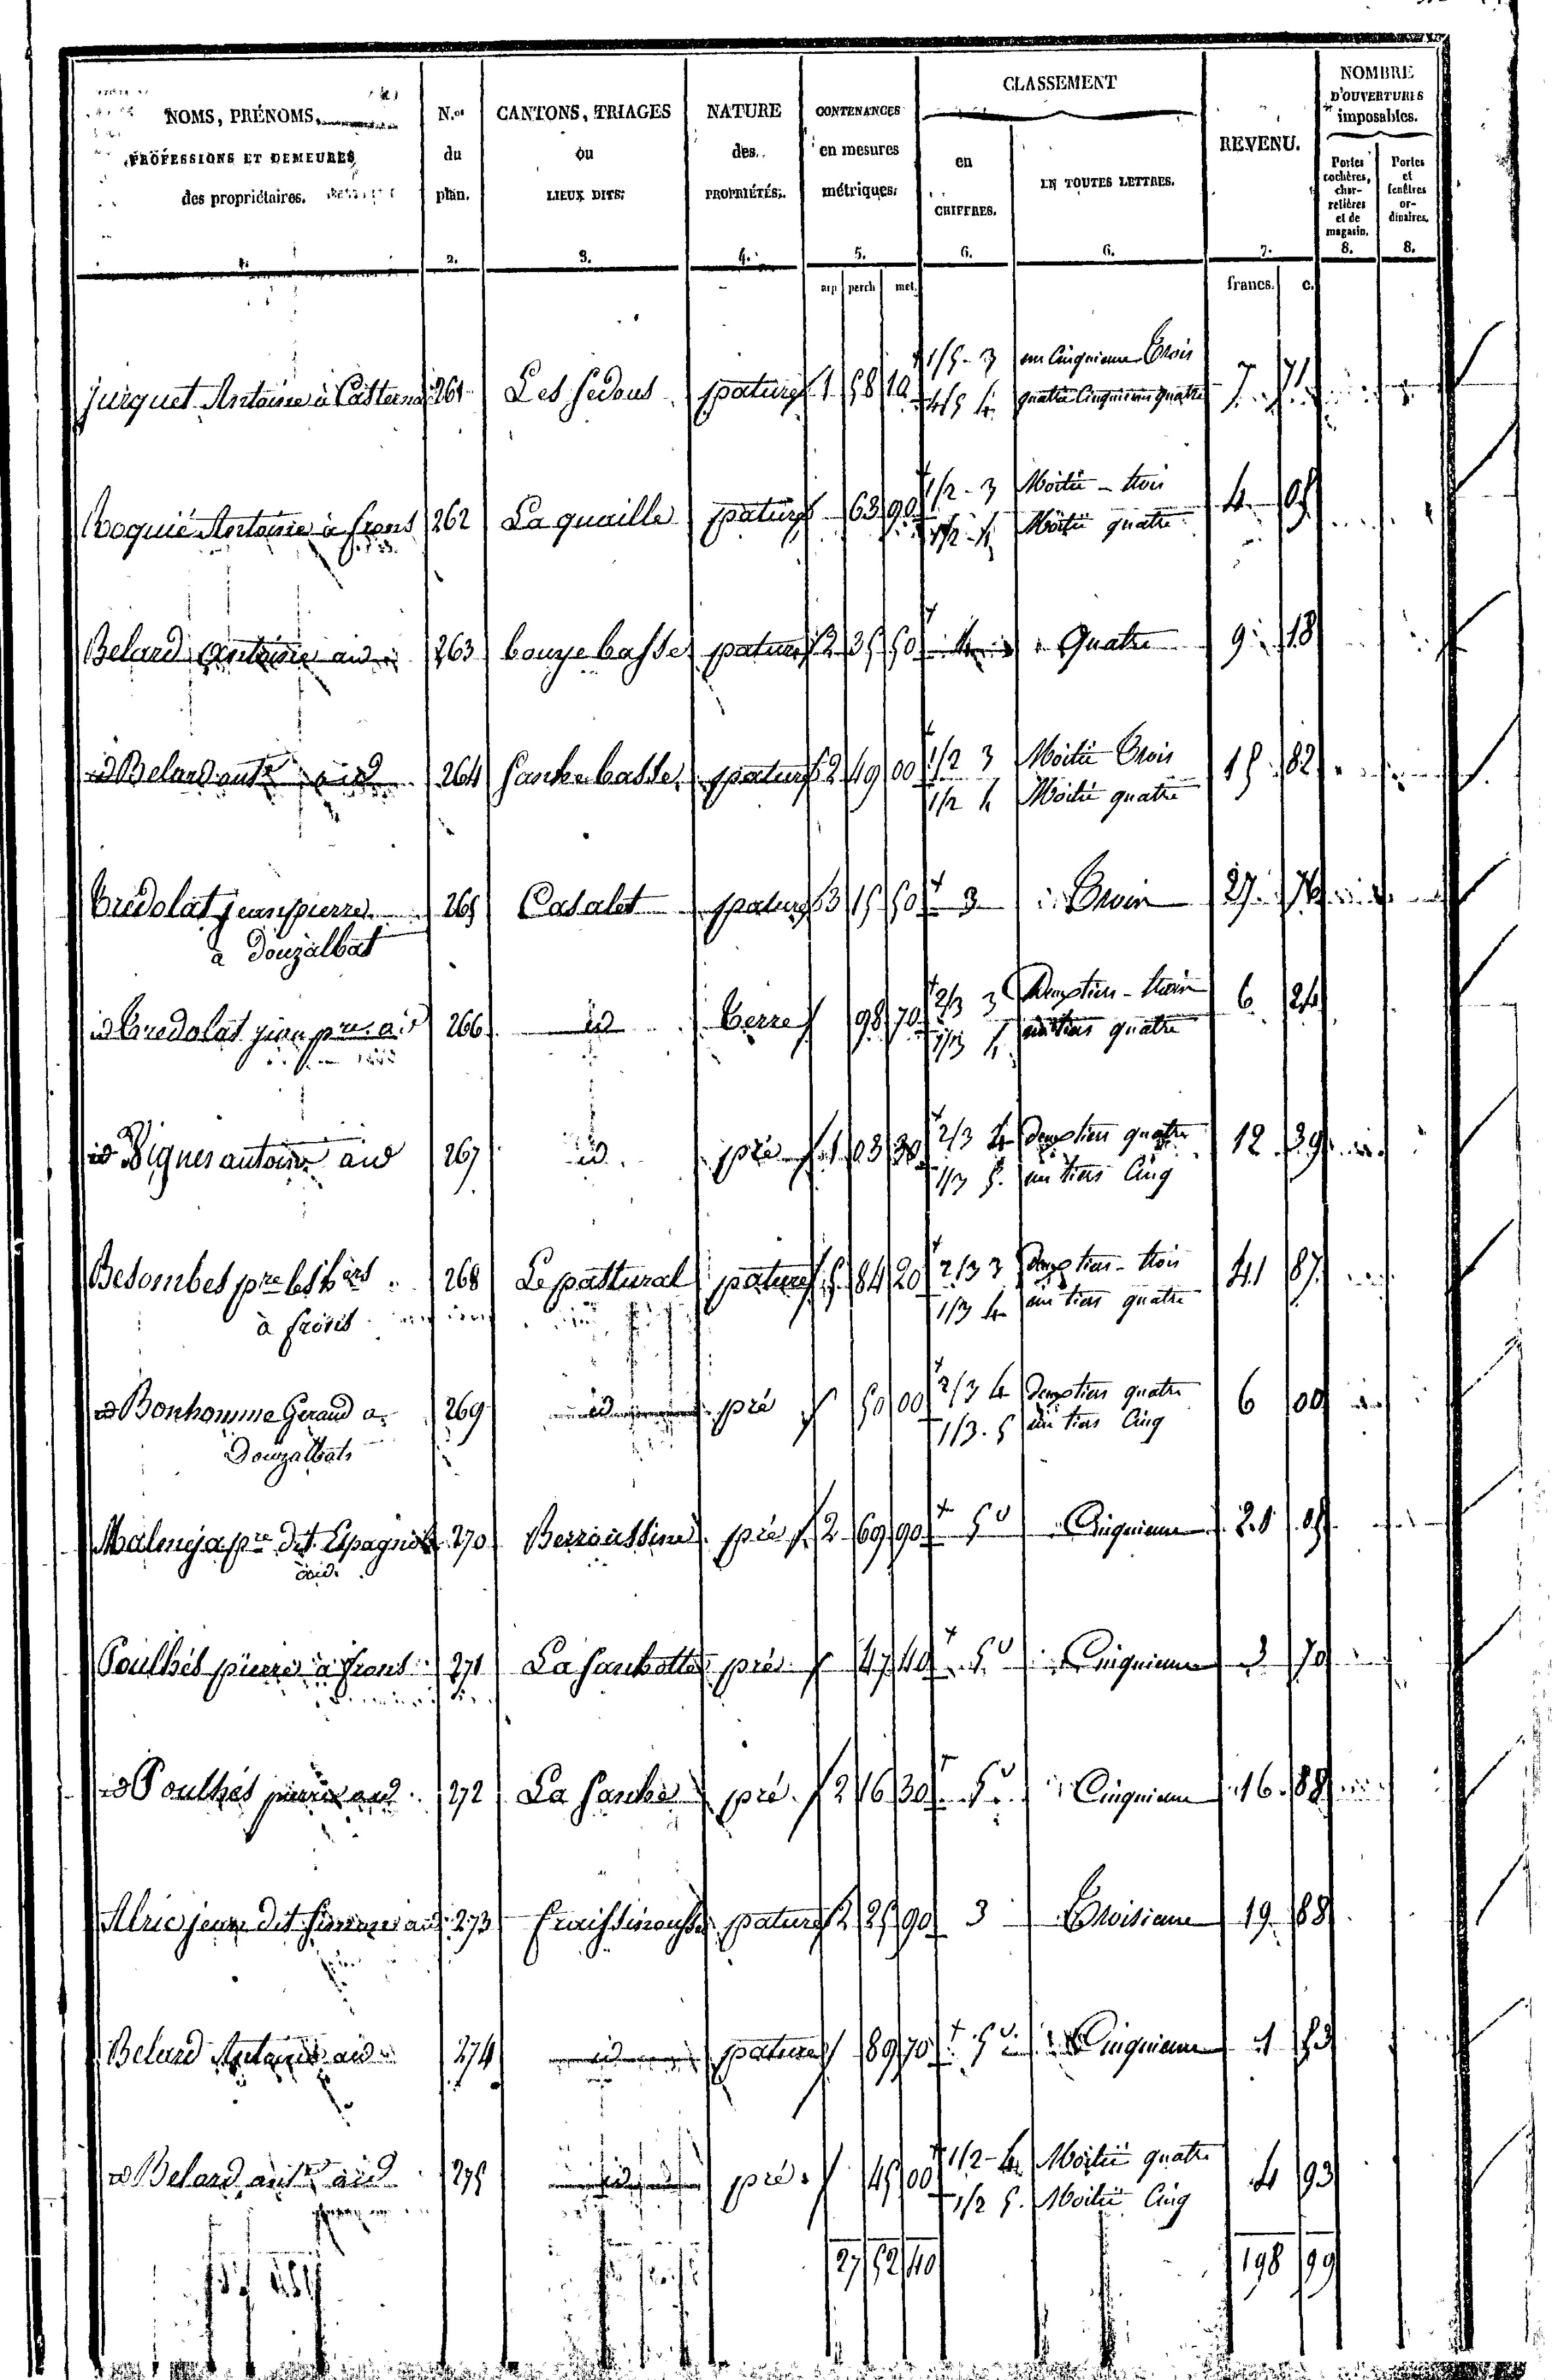 NOMS, PRÉNOMS,
PROFESSIONS ET DEMEURES
des propriétaires.
1.
N.os
du
plan.
2.
CANTONS, TRIAGES
ou
LIEUX DITS.
3.
NATURE
des
PROPRIÉTÉS.
4.
CONTENANCES
en mesures
métriques.
5.
CLASSEMENT
en
CHIFFRES.
6.
EN TOUTES LETTRES.
6.
REVENU.
7.
NOMBRE
D'OUVERTURES
imposables.
Portes
cochères,
char-
retières
et de
magasin.
8.
Portes
et
fenêtres
or-
dinaires.
8.
arp perch met. francs. c.
1/5 - 3 un Cinquieme Trois
Jurquet Antoine à Casterna 261 Les fedous pature 1 58 10 4/5 4 quatre Cinquieme quatre 7 71
1/2 - 3 Moitié - trois
Roquié Antoine à frons 262 La quaille pature 63 90 1/2 - 4 Moitié quatre 4 05
Belard Antoine aid 263 bouye basse pature 2 35 50 4 Quatre 9 18
1/2 3 Moitié Trois
id Belard ant.e aid 264 Sanhe basse pature 2 49 00 1/2 4 Moitié quatre 15 82
Credolat jean pierre 265 Casalet pature 3 15 50 3 Trois 27 76
à Douzalbat
2/3 3 Deux tiers - trois
id Credolat jean pre. aid 266 id Terre 98 70 1/3 4 un tiers quatre 6 24
2/3 4 deux tiers quatre
id Vignes antoine aid 267 id pré 1 03 30 1/3 5 un tiers Cinq 12 39
2/3 3 Deux tiers - trois
Besombes pre les hers 268 Le pastural pature 5 84 20 1/3 4 un tiers quatre 41 87
à frons
2/3 4 Deux tiers quatre
id Bonhomme Geraud a 269 id pré 50 00 1/3 - 5 un tiers Cinq 6 00
Douzalbats
Malmeja pre dit Espagnol 270 Berroussine pré 2 69 90 5 Cinquieme 21 05
aid.
Poulhés pierre à frons 271 La Sanhotte pré 47 40 5 Cinquieme 3 70
id Poulhés pierre aid 272 La Sanhe pré 2 16 30 5 Cinquieme 16 88
Alric jean dit aid 273 fraissinouse pature 2 25 90 3 Troisieme 19 88
Belard Antoine aid 274 id pature 89 70 5 Cinquieme 1 53
1/2 - 4 Moitié quatre
id Belard ant.e aid 275 id pré 45 00 1/2 5 Moitié Cinq 4 93
27 52 40 198 99